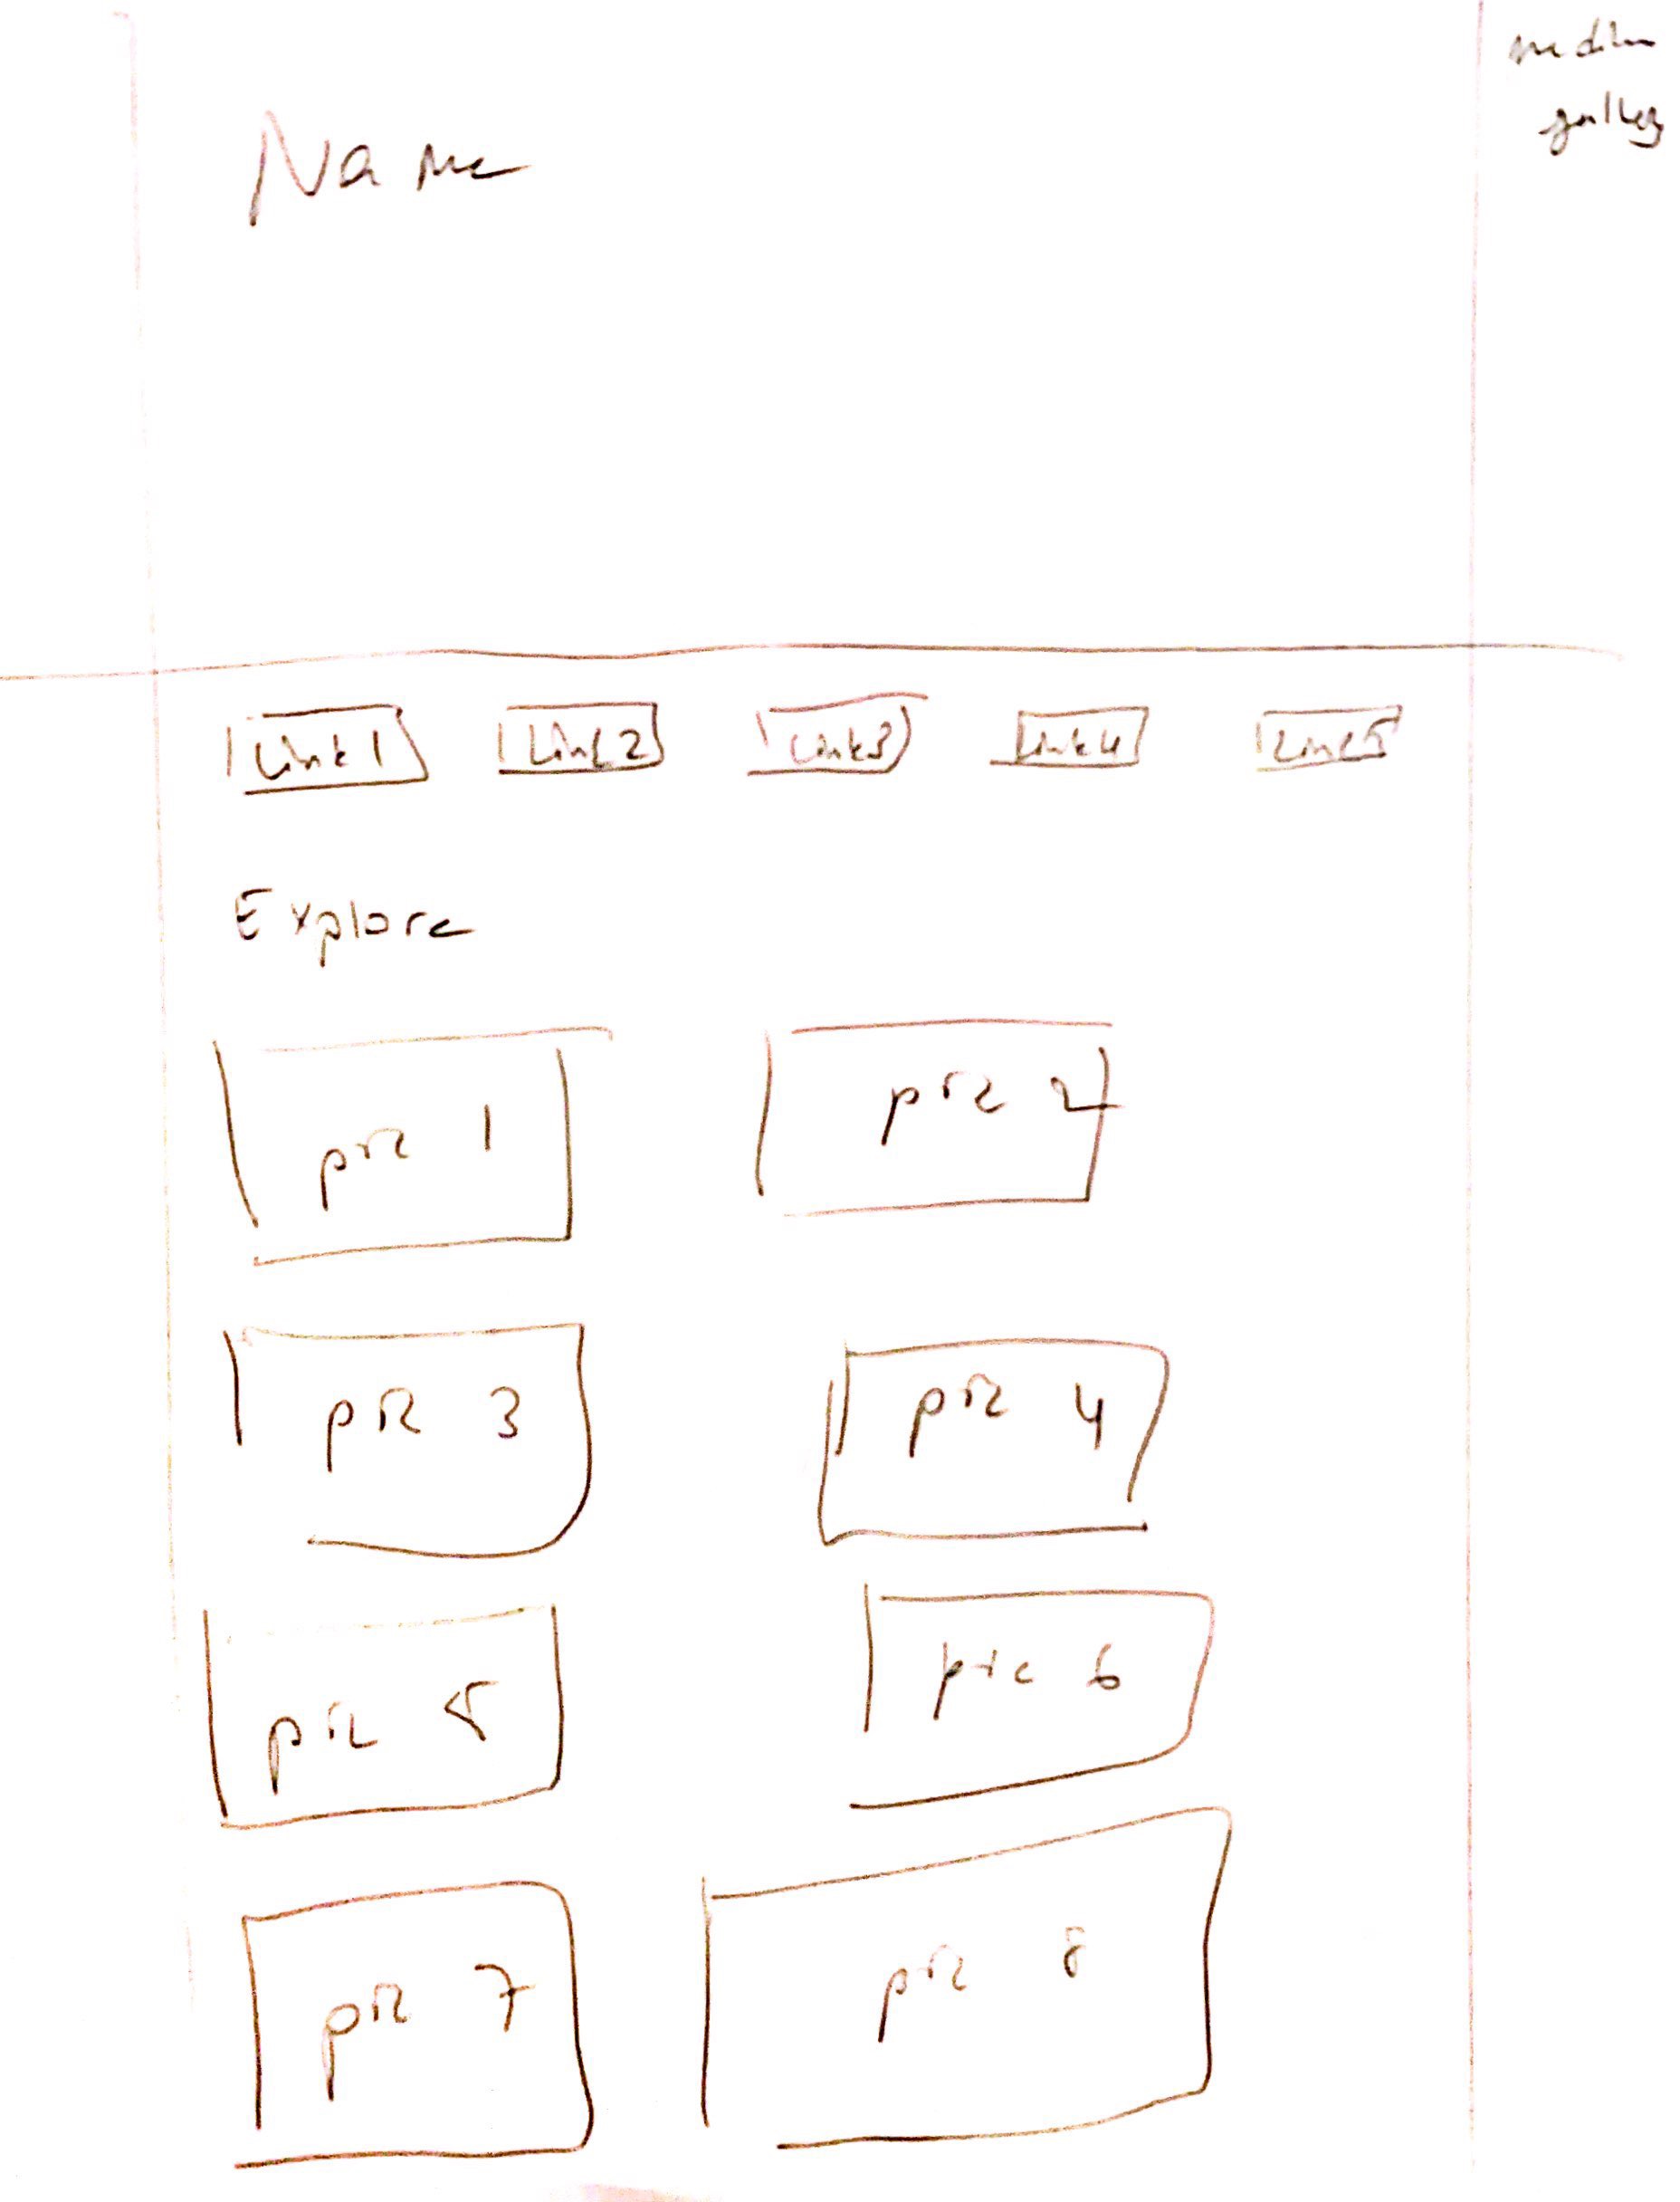 Name
gallery
Link1 Link2 Link3 Link4 Link5
Explore
pic 1 pic 2
pic 3 pic 4
pic 5 pic 6
pic 7 pic 8